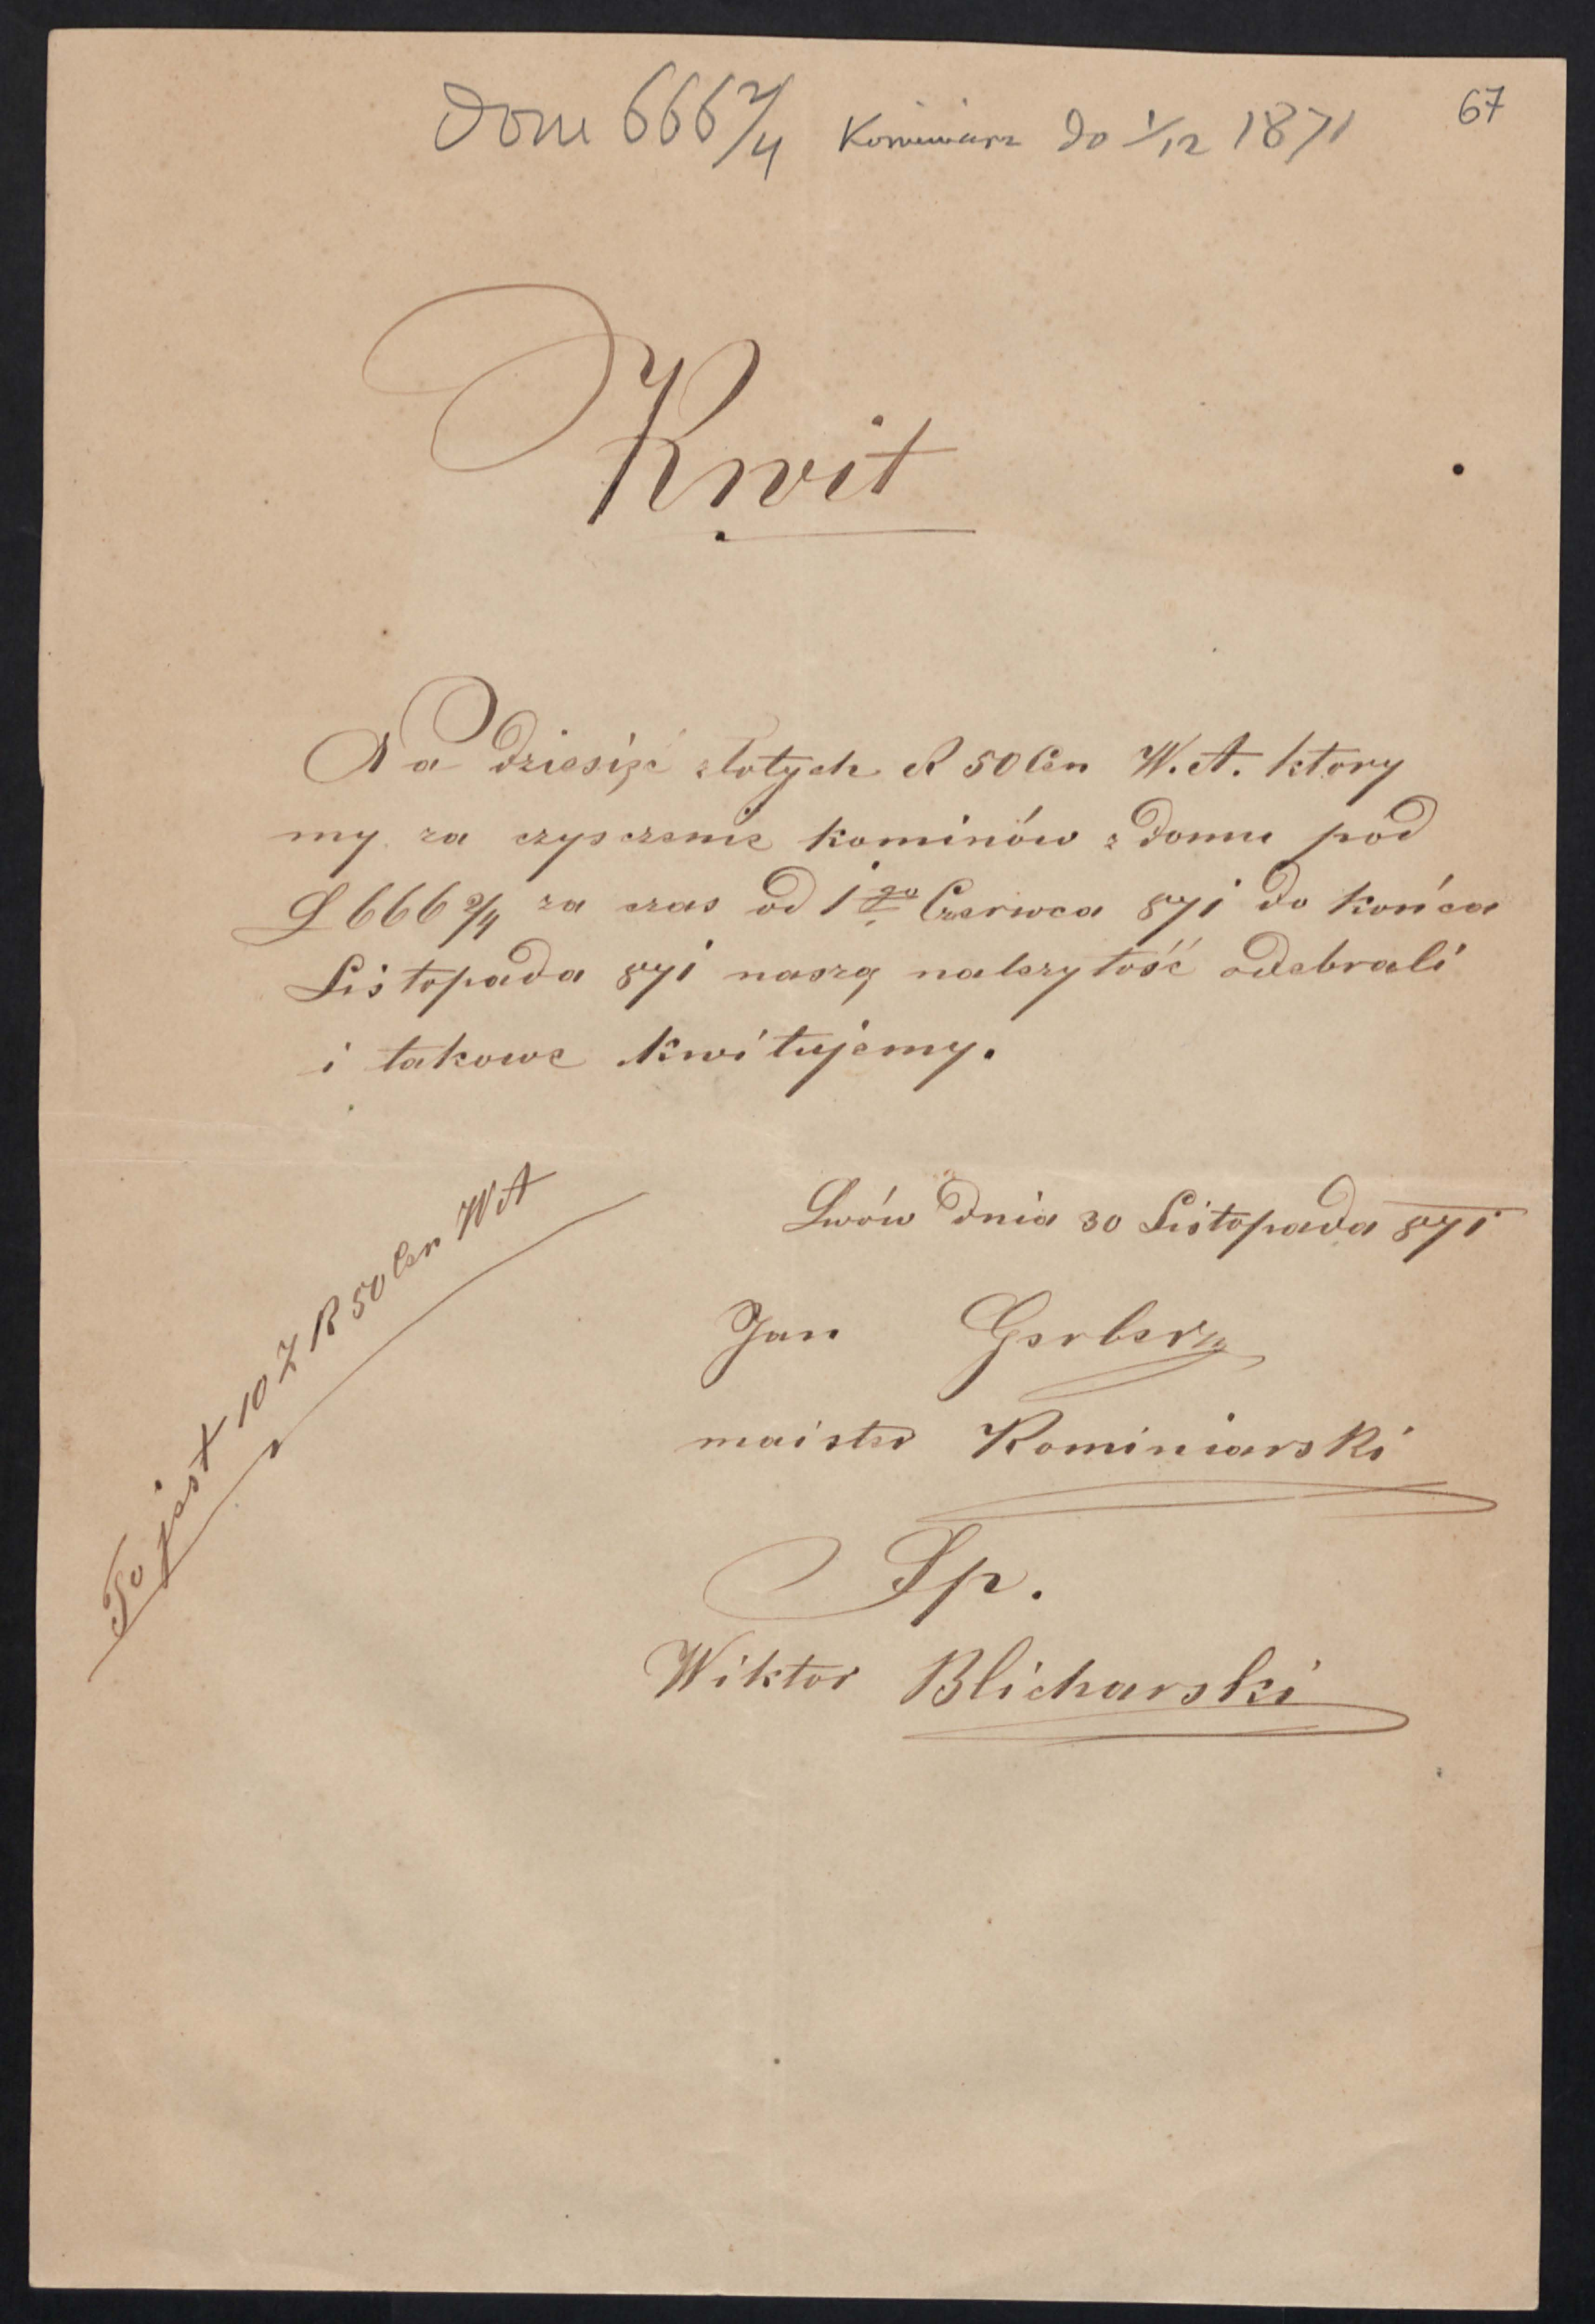 67
Dom 666 2/4 Kominiarz do 1/12 1871
Kwit
Na dziesięć złotych R 50 Cen W. A. ktory
my za czysczenie kominów z domu pod
L 666 2/4 za czas od 1go Czerwca 871 do końca
Listopada 871 naszą należytość odebrali
i takowe kwitujemy.
Lwów dnia 30 Listopada 871
To jest 10 Z R 50 Cen WA
Jan Gerber
maister Kominiarski
Sp.
Wiktor Blicharski